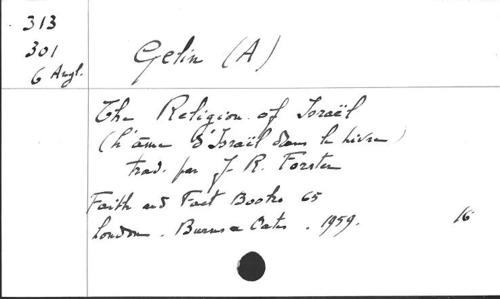 313
301
6 Angl.
Gelin (A)
The Religion of Israël
(L'âme d'Israël dans le livre)
trad. par J. R. Forster
Faith and Fact Books 65
London. Burns & Oates. 1959. 16